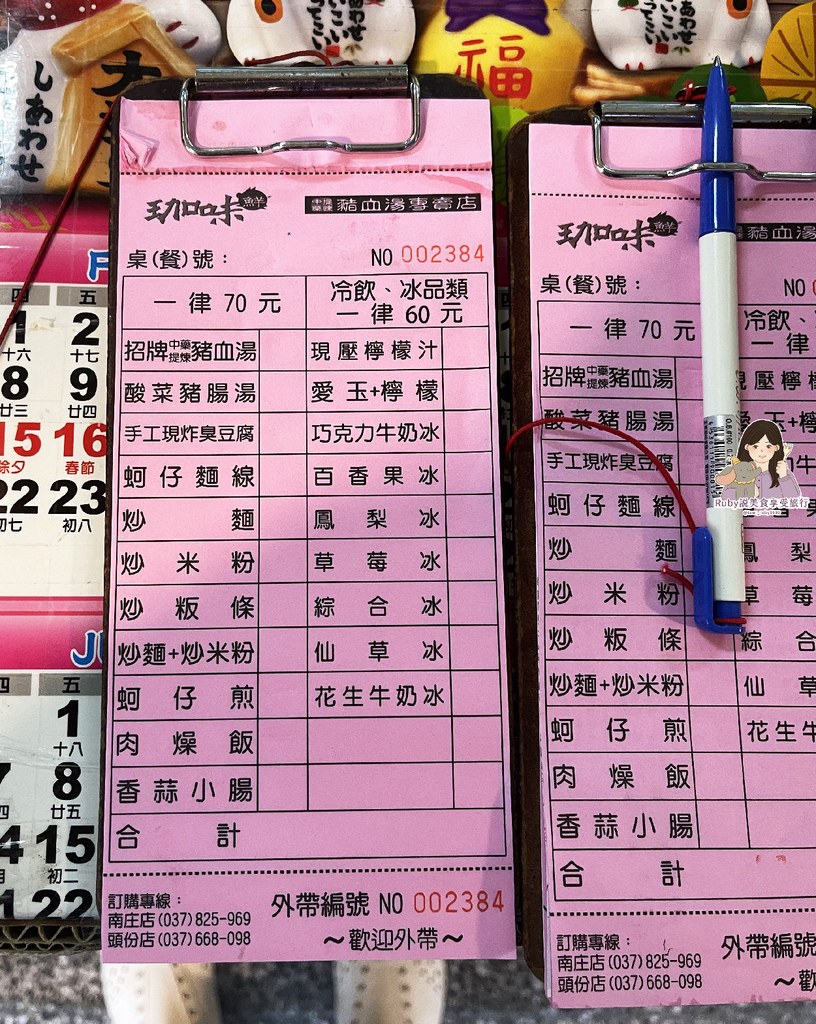 しあわせ
福
珈味鮮
中藥提煉豬血湯專賣店
桌(餐)號：
NO 002384
一律70元
冷飲、冰品類
一律60元
招牌中藥提煉豬血湯
現壓檸檬汁
酸菜豬腸湯
愛玉+檸檬
手工現炸臭豆腐
巧克力牛奶冰
蚵仔麵線
百香果冰
炒麵
鳳梨冰
炒米粉
草莓冰
炒粄條
綜合冰
炒麵+炒米粉
仙草冰
蚵仔煎
花生牛奶冰
肉燥飯
香蒜小腸
合計
訂購專線：
南庄店(037)825-969
頭份店(037)668-098
外帶編號 NO 002384
～歡迎外帶～
珈味鮮
豬血湯
桌(餐)號：
NO
一律70元
冷飲、
一律
招牌中藥提煉豬血湯
現壓檸
酸菜豬腸湯
手工現炸臭豆腐
蚵仔麵線
炒麵
鳳梨
炒米粉
草莓
炒粄條
綜合
炒麵+炒米粉
仙草
蚵仔煎
花生牛
肉燥飯
香蒜小腸
合計
訂購專線：
南庄店(037)825-969
頭份店(037)668-098
外帶編號
～歡
Ruby說美食享受旅行
四 五
1 2
十六 十七
8 9
廿三 廿四
15 16
除夕 春節
22 23
初七 初八
四 五
1
十八
8
廿五
15
初二
22